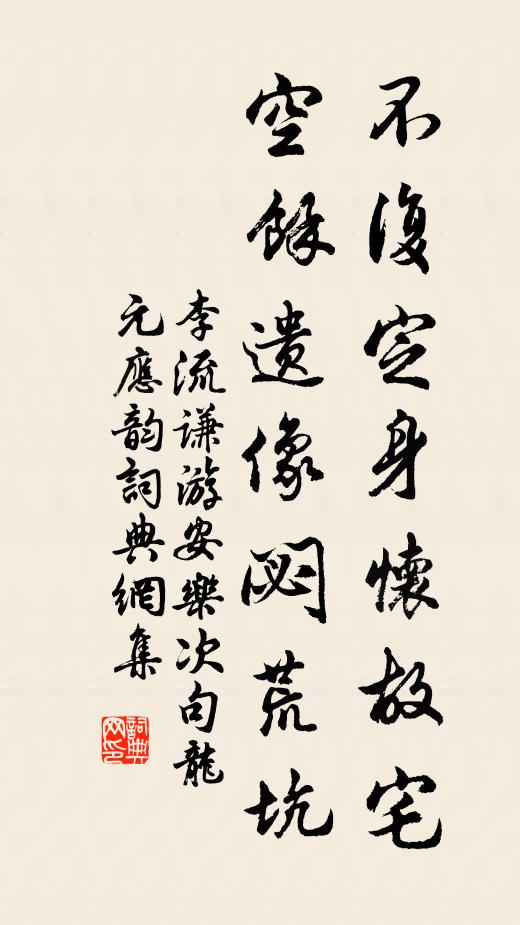 不復定身懷故宅
空餘遺像閟荒坑
李流謙游安樂次句龍
元應韵詞典網集
詞典
网印